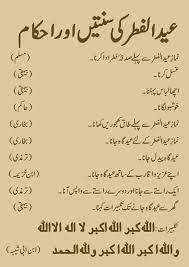 عید الفطر کی سنتیں اور احکام
نمازِ عید الفطر سے پہلے صدقہ فطر ادا کرنا۔ (مسلم)
غسل کرنا۔ (بیہقی)
اچھا لباس پہننا۔ (بیہقی)
خوشبو لگانا۔ (حاکم)
نمازِ عید الفطر سے پہلے طاق کھجوریں کھانا۔ (بخاری)
نمازِ عید الفطر کے لئے عید گاہ جانا۔ (بخاری)
عید گاہ پیدل جانا۔ (ترمذی)
اپنے عزیز و اقارب کے ساتھ عید گاہ جانا۔ (ابن خزیمہ)
ایک راستے سے جانا اور دوسرے راستے سے واپس آنا۔ (ترمذی)
گھر سے عید گاہ جانے تک تکبیرات کہنا۔ (بیہقی)
تکبیرات: اللہ اکبر اللہ اکبر لا الہ الا اللہ
واللہ اکبر اللہ اکبر وللہ الحمد (ابن ابی شیبہ)